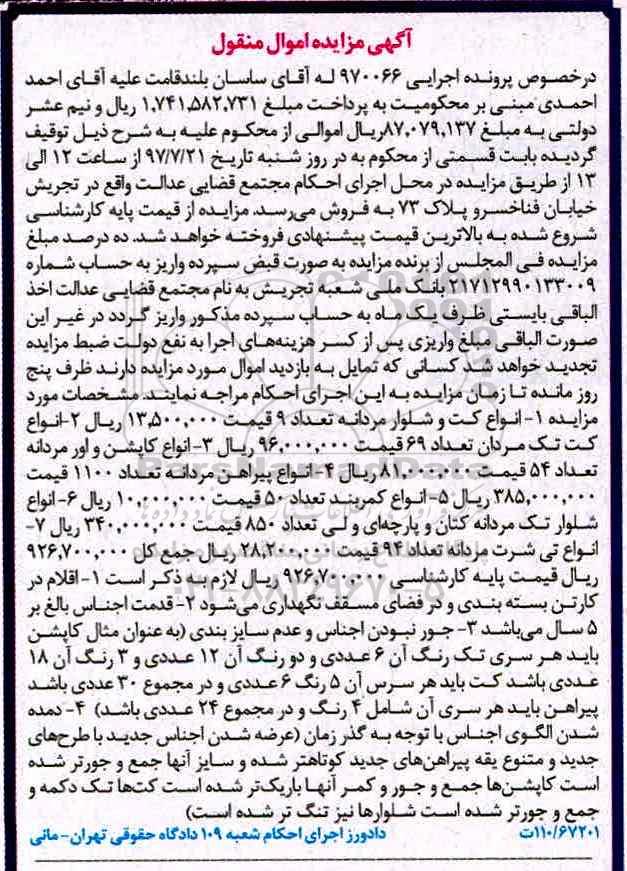 آگهی مزایده اموال منقول
درخصوص پرونده اجرایی ۹۷۰۰۶۶ له آقای ساسان بلندقامت علیه آقای احمد
احمدی مبنی بر محکومیت به پرداخت مبلغ ۱,۷۴۱,۵۸۲,۷۳۱ ریال و نیم عشر
دولتی به مبلغ ۸۷,۰۷۹,۱۳۷ریال اموالی از محکوم علیه به شرح ذیل توقیف
گردیده بابت قسمتی از محکوم به در روز شنبه تاریخ ۹۷/۷/۲۱ از ساعت ۱۲ الی
۱۳ از طریق مزایده در محل اجرای احکام مجتمع قضایی عدالت واقع در تجریش
خیابان فناخسرو پلاک ۷۳ به فروش می‌رسد. مزایده از قیمت پایه کارشناسی
شروع شده به بالاترین قیمت پیشنهادی فروخته خواهد شد. ده درصد مبلغ
مزایده فی المجلس از برنده مزایده به صورت قبض سپرده واریز به حساب شماره
۲۱۷۱۲۹۹۰۱۳۳۰۰۹ بانک ملی شعبه تجریش به نام مجتمع قضایی عدالت اخذ
الباقی بایستی ظرف یک ماه به حساب سپرده مذکور واریز گردد در غیر این
صورت الباقی مبلغ واریزی پس از کسر هزینه‌های اجرا به نفع دولت ضبط مزایده
تجدید خواهد شد کسانی که تمایل به بازدید اموال مورد مزایده دارند ظرف پنج
روز مانده تا زمان مزایده به این اجرای احکام مراجعه نمایند. مشخصات مورد
مزایده ۱- انواع کت و شلوار مردانه تعداد ۹ قیمت ۱۳,۵۰۰,۰۰۰ ریال ۲-انواع
کت تک مردان تعداد ۶۹ قیمت ۹۶,۰۰۰,۰۰۰ ریال ۳-انواع کاپشن و اور مردانه
تعداد ۵۴ قیمت ۸۱,۰۰۰,۰۰۰ ریال ۴-انواع پیراهن مردانه تعداد ۱۱۰۰ قیمت
۳۸۵,۰۰۰,۰۰۰ ریال ۵-انواع کمربند تعداد ۵۰ قیمت ۱۰,۰۰۰,۰۰۰ ریال ۶-انواع
شلوار تک مردانه کتان و پارچه‌ای و لی تعداد ۸۵۰ قیمت ۳۴۰,۰۰۰,۰۰۰ ریال ۷-
انواع تی شرت مردانه تعداد ۹۴ قیمت ۲۸,۲۰۰,۰۰۰ ریال جمع کل ۹۲۶,۷۰۰,۰۰۰
ریال قیمت پایه کارشناسی ۹۲۶,۷۰۰,۰۰۰ ریال لازم به ذکر است ۱-اقلام در
کارتن بسته بندی و در فضای مسقف نگهداری می‌شود ۲- قدمت اجناس بالغ بر
۵ سال می‌باشد ۳- جور نبودن اجناس و عدم سایز بندی (به عنوان مثال کاپشن
باید هر سری تک رنگ آن ۶ عددی و دو رنگ آن ۱۲ عددی و ۳ رنگ آن ۱۸
عددی باشد کت باید هر سرس آن ۵ رنگ ۶ عددی و در مجموع ۳۰ عددی باشد
پیراهن باید هر سری آن شامل ۴ رنگ و در مجموع ۲۴ عددی باشد) ۴-دمده
شدن الگوی اجناس با توجه به گذر زمان (عرضه شدن اجناس جدید با طرح‌های
جدید و متنوع یقه پیراهن‌های جدید کوتاهتر شده و سایز آنها جمع و جورتر شده
است کاپشن‌ها جمع و جور و کمر آنها باریک‌تر شده است کت‌ها تک دکمه و
جمع و جورتر شده است شلوارها نیز تنگ تر شده است)
۱۱۰/۶۷۲۰۱ت دادورز اجرای احکام شعبه ۱۰۹ دادگاه حقوقی تهران-مانی